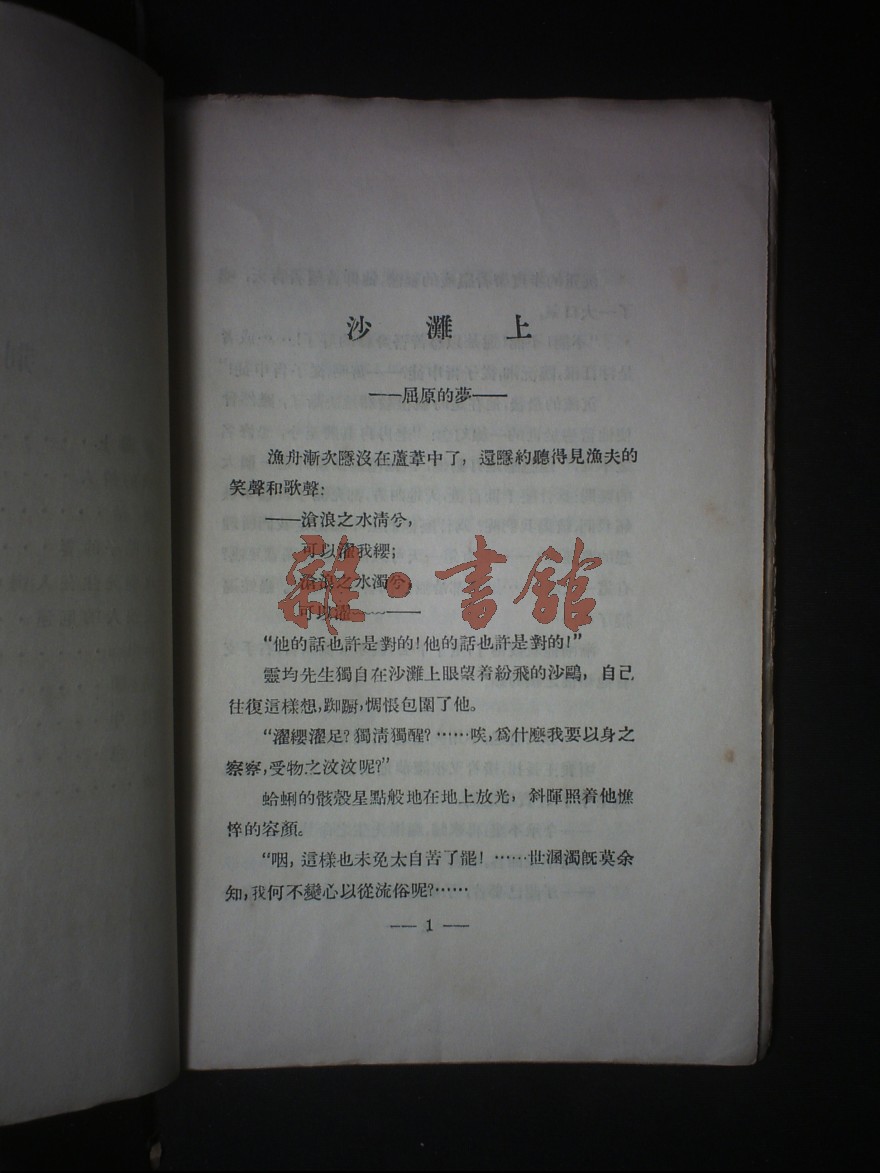 沙灘上
——屈原的夢——
漁舟漸次隱沒在蘆葦中了，還隱約聽得見漁夫的
笑聲和歌聲：
——滄浪之水清兮，
可以濯我纓；
滄浪之水濁兮，
可以濯~~~——
“他的話也許是對的！他的話也許是對的！”
靈均先生獨自在沙灘上眼望着紛飛的沙鷗，自己
往復這樣想，踟蹰，惆悵包圍了他。
“濯纓濯足？獨清獨醒？……唉，爲什麼我要以身之
察察，受物之汶汶呢？”
蛤蜊的骸殼星點般地在地上放光，斜暉照着他憔
悴的容顏。
“咽，這樣也未免太自苦了罷！……世溷濁旣莫余
知，我何不變心以從流俗呢？……
— 1 —
雜·書館